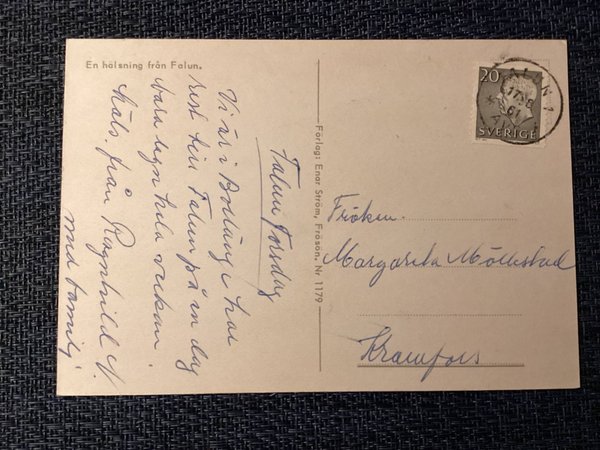 En hälsning från Falun.
Falun Torsdag
Vi är i Borlänge har
rest hit Falun på en dag
bara regn hela veckan.
Häls. från Ragnhild N.
med familj
Förlag: Enar Ström, Frösön. Nr 1179
20
SVERIGE
FALUN 1
61
Fröken.
Margareta Möllestad
Kramfors